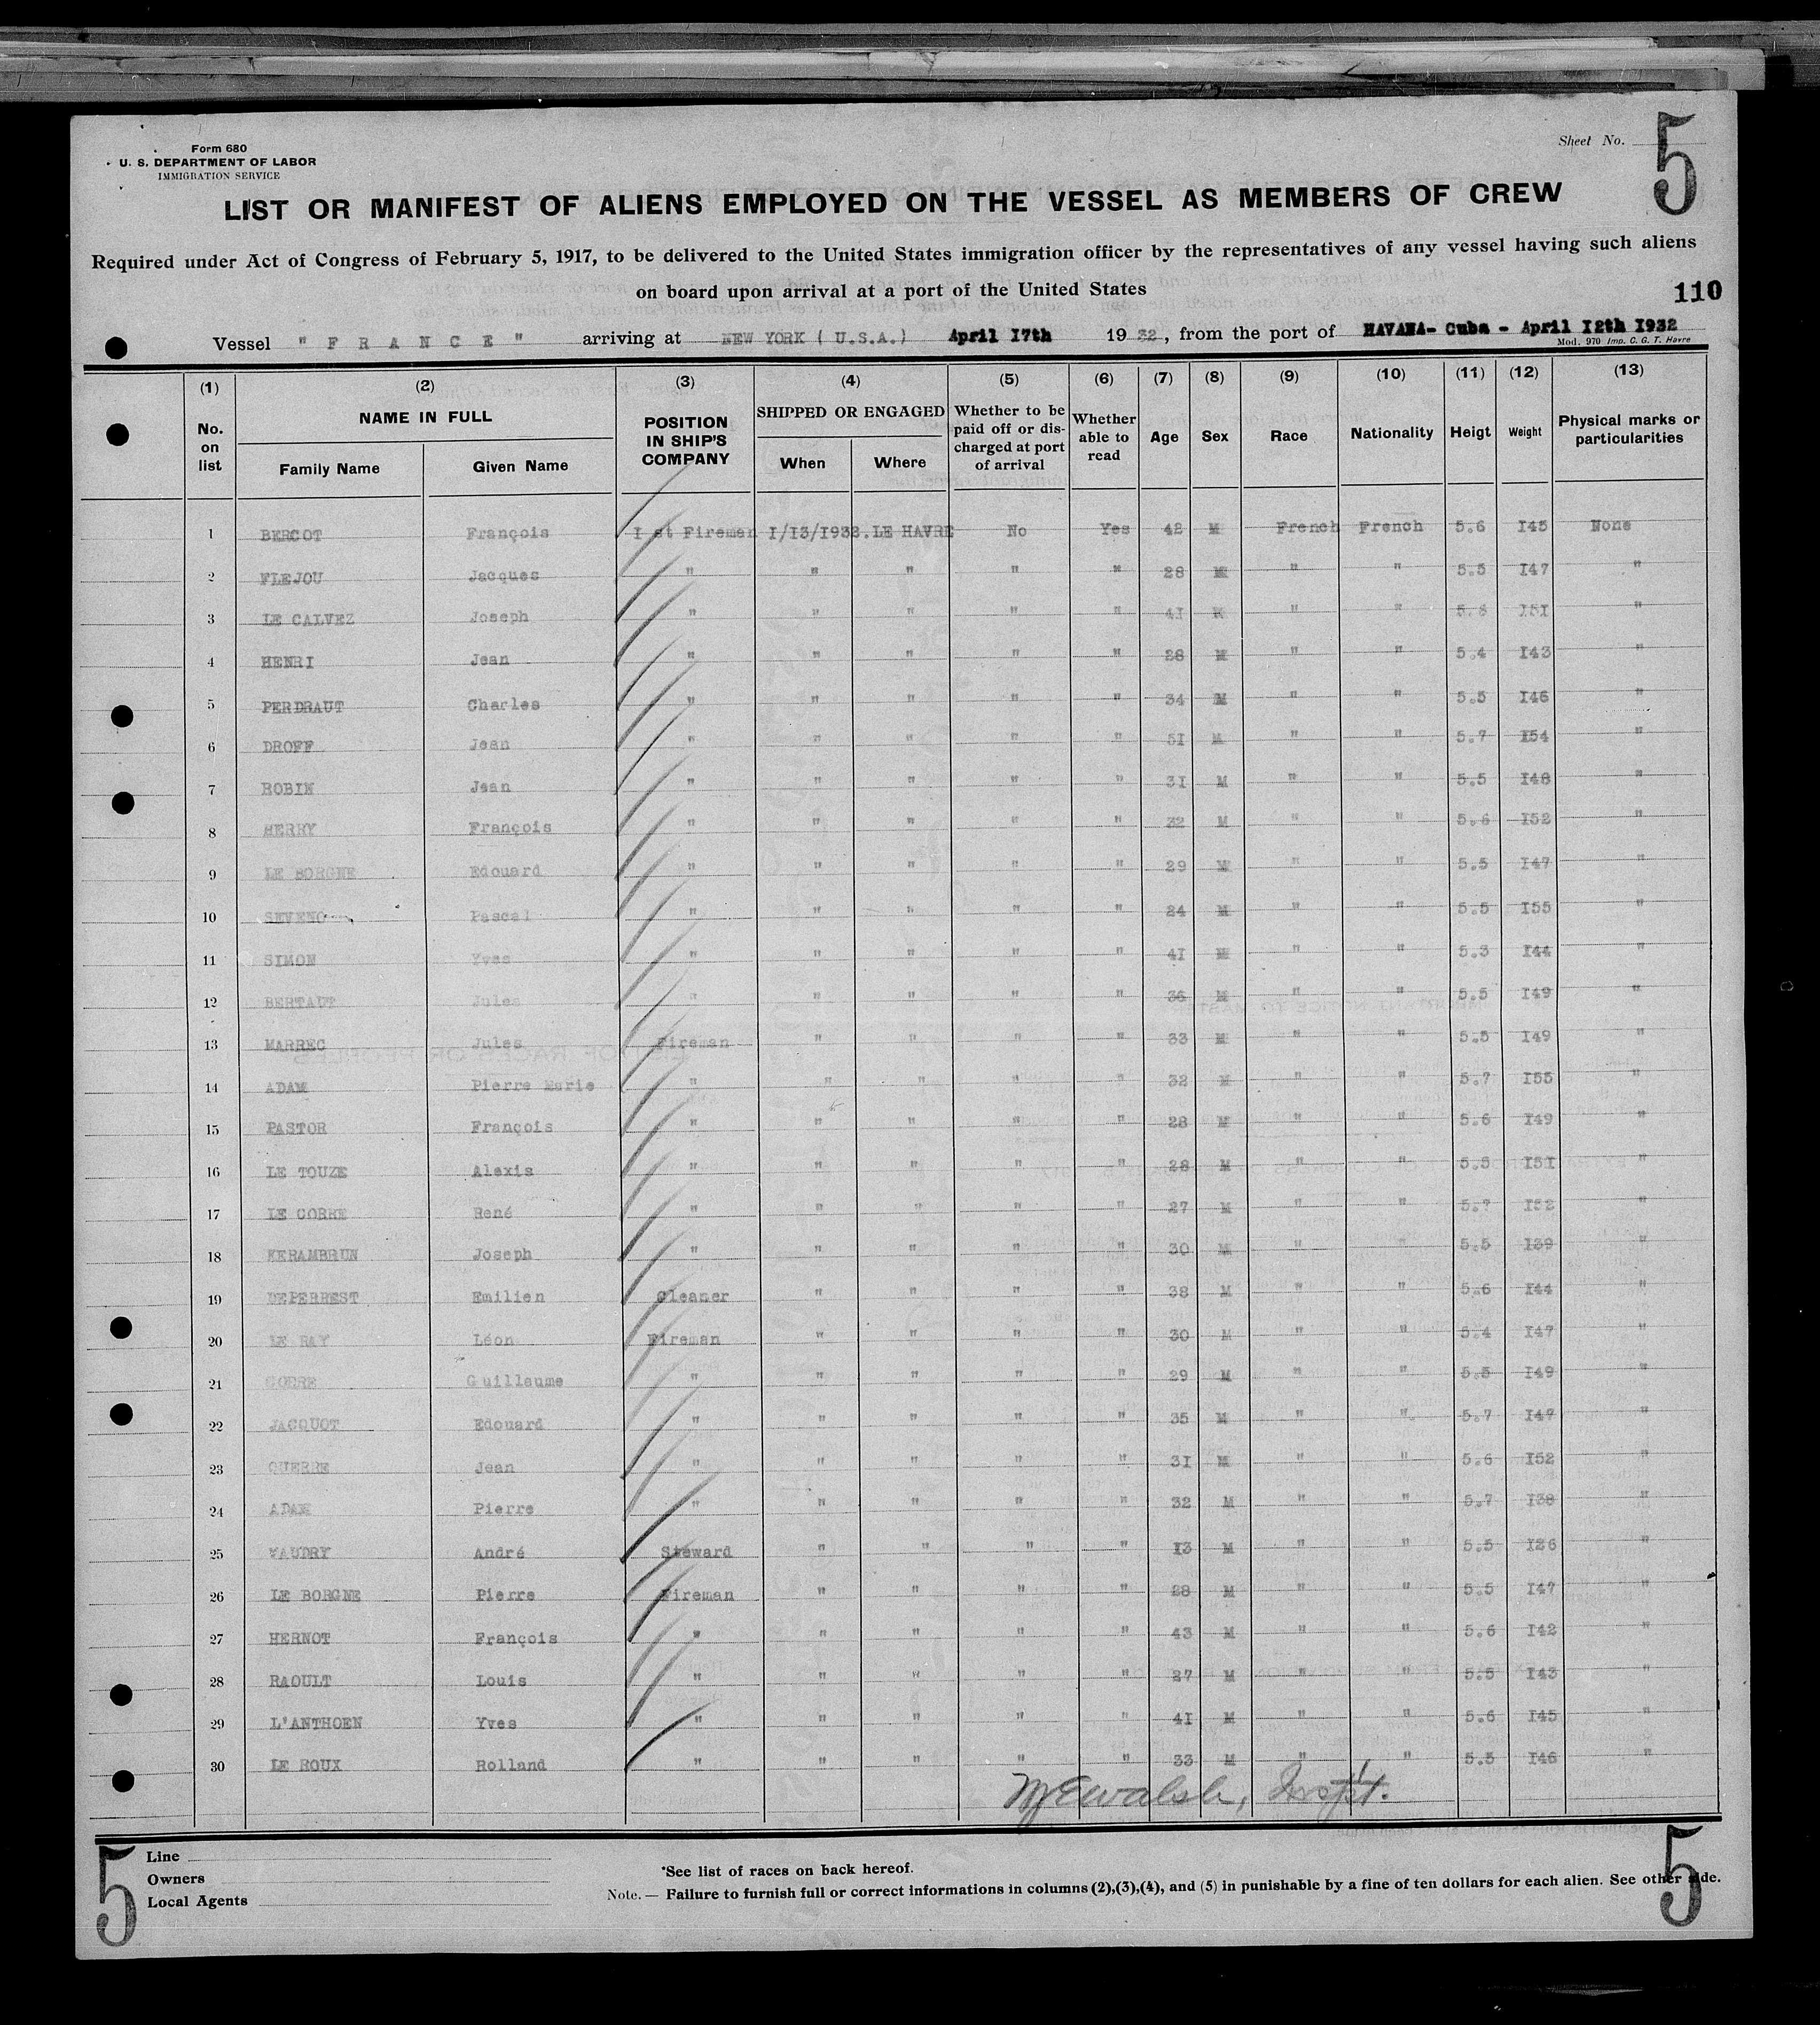 Form 680
U. S. DEPARTMENT OF LABOR
IMMIGRATION SERVICE
Sheet No. 5
LIST OR MANIFEST OF ALIENS EMPLOYED ON THE VESSEL AS MEMBERS OF CREW
Required under Act of Congress of February 5, 1917, to be delivered to the United States immigration officer by the representatives of any vessel having such aliens
on board upon arrival at a port of the United States
110
Vessel " F R A N C E " arriving at NEW YORK ( U.S.A.) April I7th 19 32, from the port of HAVANA- Cuba - April I2th I932
Mod. 970 Imp. C. G. T. Havre
(1) (2) (3) (4) (5) (6) (7) (8) (9) (10) (11) (12) (13)
No. on list NAME IN FULL Family Name Given Name POSITION IN SHIP'S COMPANY SHIPPED OR ENGAGED When Where Whether to be paid off or discharged at port of arrival Whether able to read Age Sex Race Nationality Heigt Weight Physical marks or particularities
1 BERCOT François I st Fireman I/I3/1932.LE HAVRE No Yes 42 M French French 5.6 I45 None
2 FLEJOU Jacques " " " " " 28 M " " 5.5 I47 "
3 LE CALVEZ Joseph " " " " " 4I M " " 5.6 I5I "
4 HENRI Jean " " " " " 28 M " " 5.4 I43 "
5 PERDRAUT Charles " " " " " 34 M " " 5.5 I46 "
6 DROFF Jean " " " " " 5I M " " 5.7 I54 "
7 ROBIN Jean " " " " " 3I M " " 5.5 I48 "
8 HERRY François " " " " " 32 M " " 5.6 I52 "
9 LE BORGNE Edouard " " " " " 29 M " " 5.5 I47 "
10 SEVENO Pascal " " " " " 24 M " " 5.5 I55 "
11 SIMON Yves " " " " " 4I M " " 5.3 I44 "
12 BERTAUT Jules " " " " " 36 M " " 5.5 I49 "
13 MARREC Jules Fireman " " " " 33 M " " 5.5 I49 "
14 ADAM Pierre Marie " " " " " 32 M " " 5.7 I55 "
15 PASTOR François " " " " " 28 M " " 5.6 I49 "
16 LE TOUZE Alexis " " " " " 28 M " " 5.5 I5I "
17 LE CORRE René " " " " " 27 M " " 5.7 I52 "
18 KERAMBRUN Joseph " " " " " 30 M " " 5.5 I39 "
19 DEPERREST Emilien Cleaner " " " " 38 M " " 5.6 I44 "
20 LE RAY Léon Fireman " " " " 30 M " " 5.4 I47 "
21 Guillaume " " " " " 29 M " " 5.5 I49 "
22 JACQUOT Edouard " " " " " 35 M " " 5.7 I47 "
23 Jean " " " " " 3I M " " 5.6 I52 "
24 ADAM Pierre " " " " " 32 M " " 5.7 I38 "
25 VAUDRY André Steward " " " " I3 M " " 5.5 I26 "
26 LE BORGNE Pierre Fireman " " " " 28 M " " 5.5 I47 "
27 HERNOT François " " " " " 43 M " " 5.6 I42 "
28 RAOULT Louis " " " " " 27 M " " 5.5 I43 "
29 L'ANTHOEN Yves " " " " " 4I M " " 5.6 I45 "
30 LE ROUX Rolland " " " " " 33 M " " 5.5 I46 "
Walsh, Insp't.
Line
Owners
Local Agents
*See list of races on back hereof.
Note. — Failure to furnish full or correct informations in columns (2),(3),(4), and (5) in punishable by a fine of ten dollars for each alien. See other side.
5
5